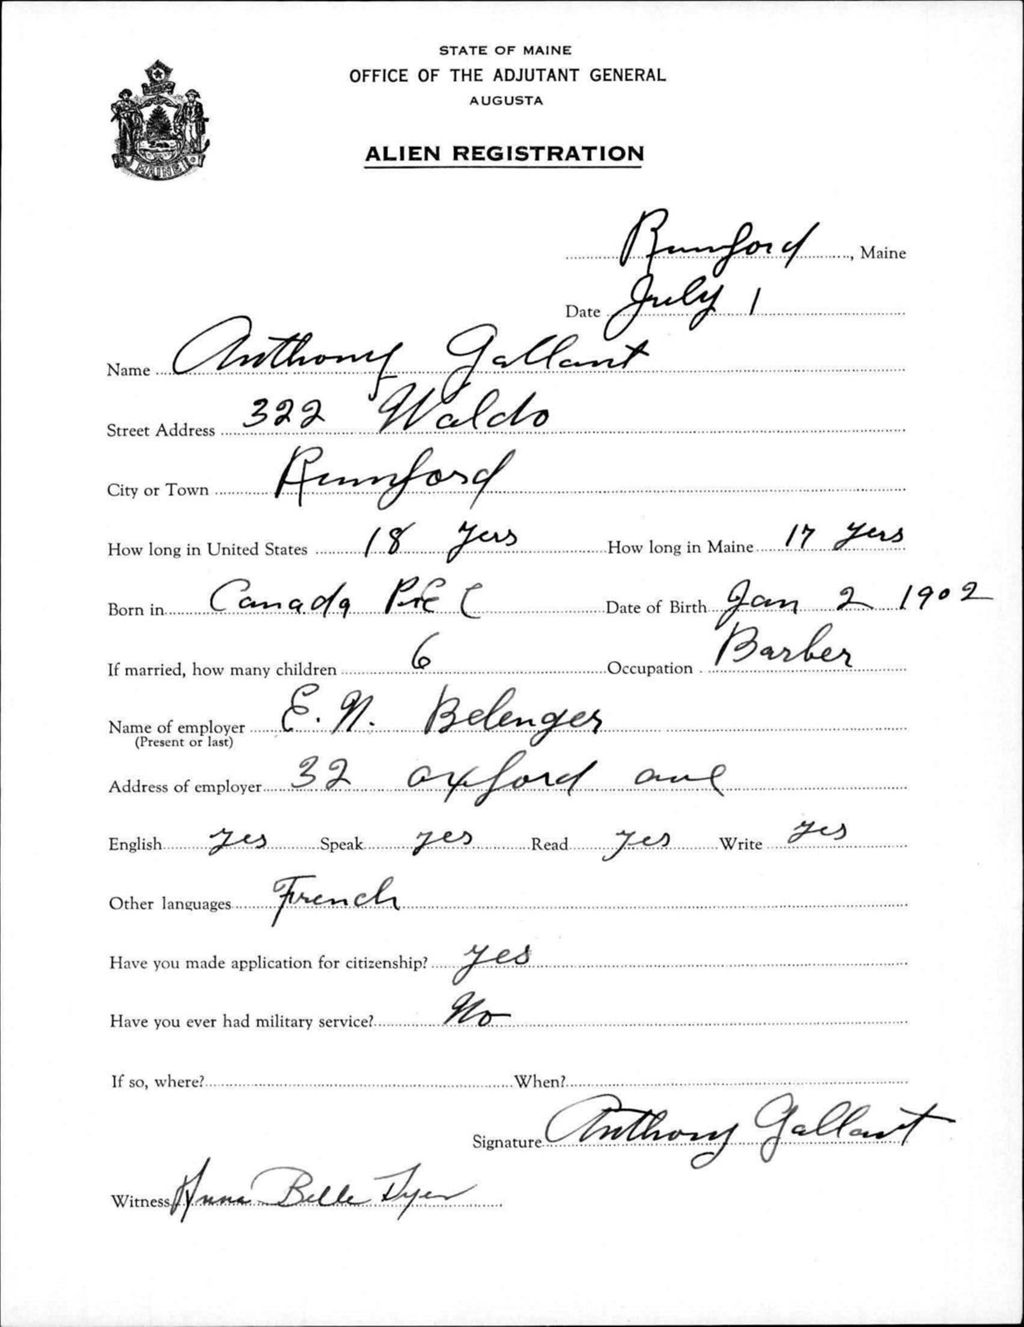 STATE OF MAINE
OFFICE OF THE ADJUTANT GENERAL
AUGUSTA
ALIEN REGISTRATION
MAINE
Rumford, Maine
Date July 1
Name Anthony Gallant
Street Address 322 Waldo
City or Town Rumford
How long in United States 18 yers How long in Maine 17 yers
Born in Canada P.E I Date of Birth Jan 2 1902
If married, how many children 6 Occupation Barber
Name of employer E. N. Belenger
(Present or last)
Address of employer 32 oxford ave
English yes Speak yes Read yes Write yes
Other languages French
Have you made application for citizenship? yes
Have you ever had military service? No
If so, where? When?
Signature Anthony Gallant
Witness Anna Belle Dyer